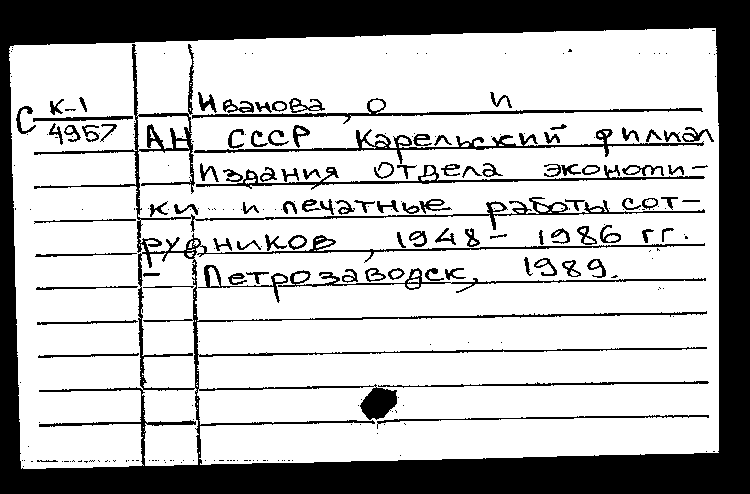 Иванова, О И
С К-1
4957
АН СССР Карельский филиал
Издания отдела экономи-
ки и печатные работы сот-
рудников, 1948- 1986 гг.
- Петрозаводск, 1989.